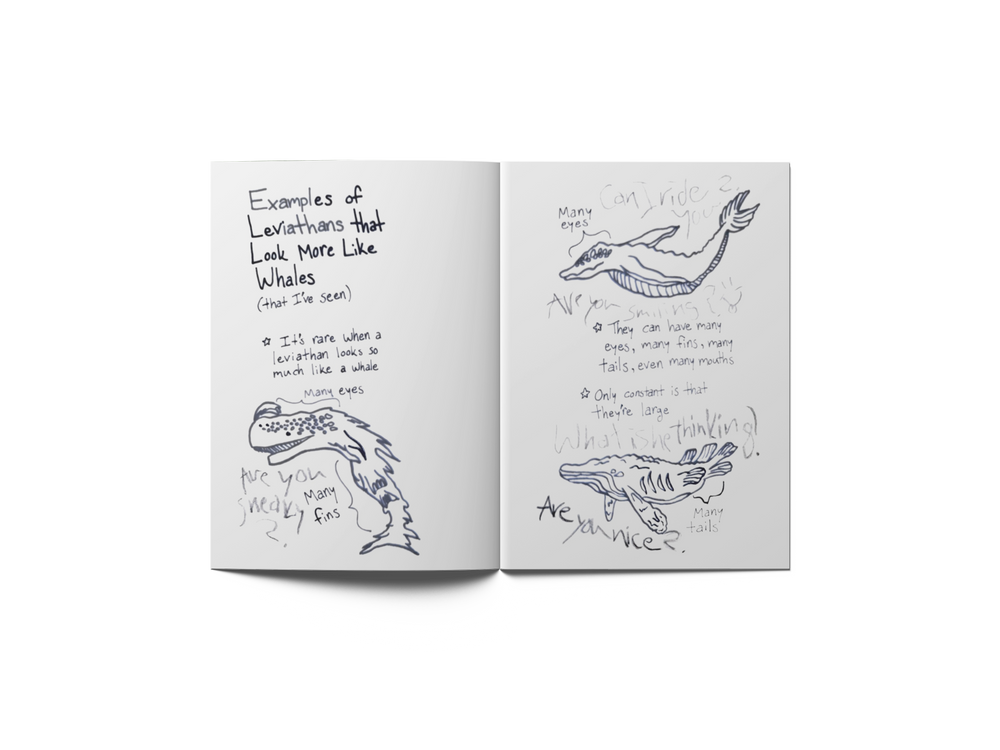 Examples of
Leviathans that
Look More Like
Whales
(that I've seen)
☆ It's rare when a
leviathan looks so
much like a whale
Many eyes
Are you
sneaky
?.
Many
fins
Can I ride
you?.
Many
eyes
Are you smiling?
☆ They can have many
eyes, many fins, many
tails, even many mouths
☆ Only constant is that
they're large
What is he thinking?
Many
tails
Are
you nice?.